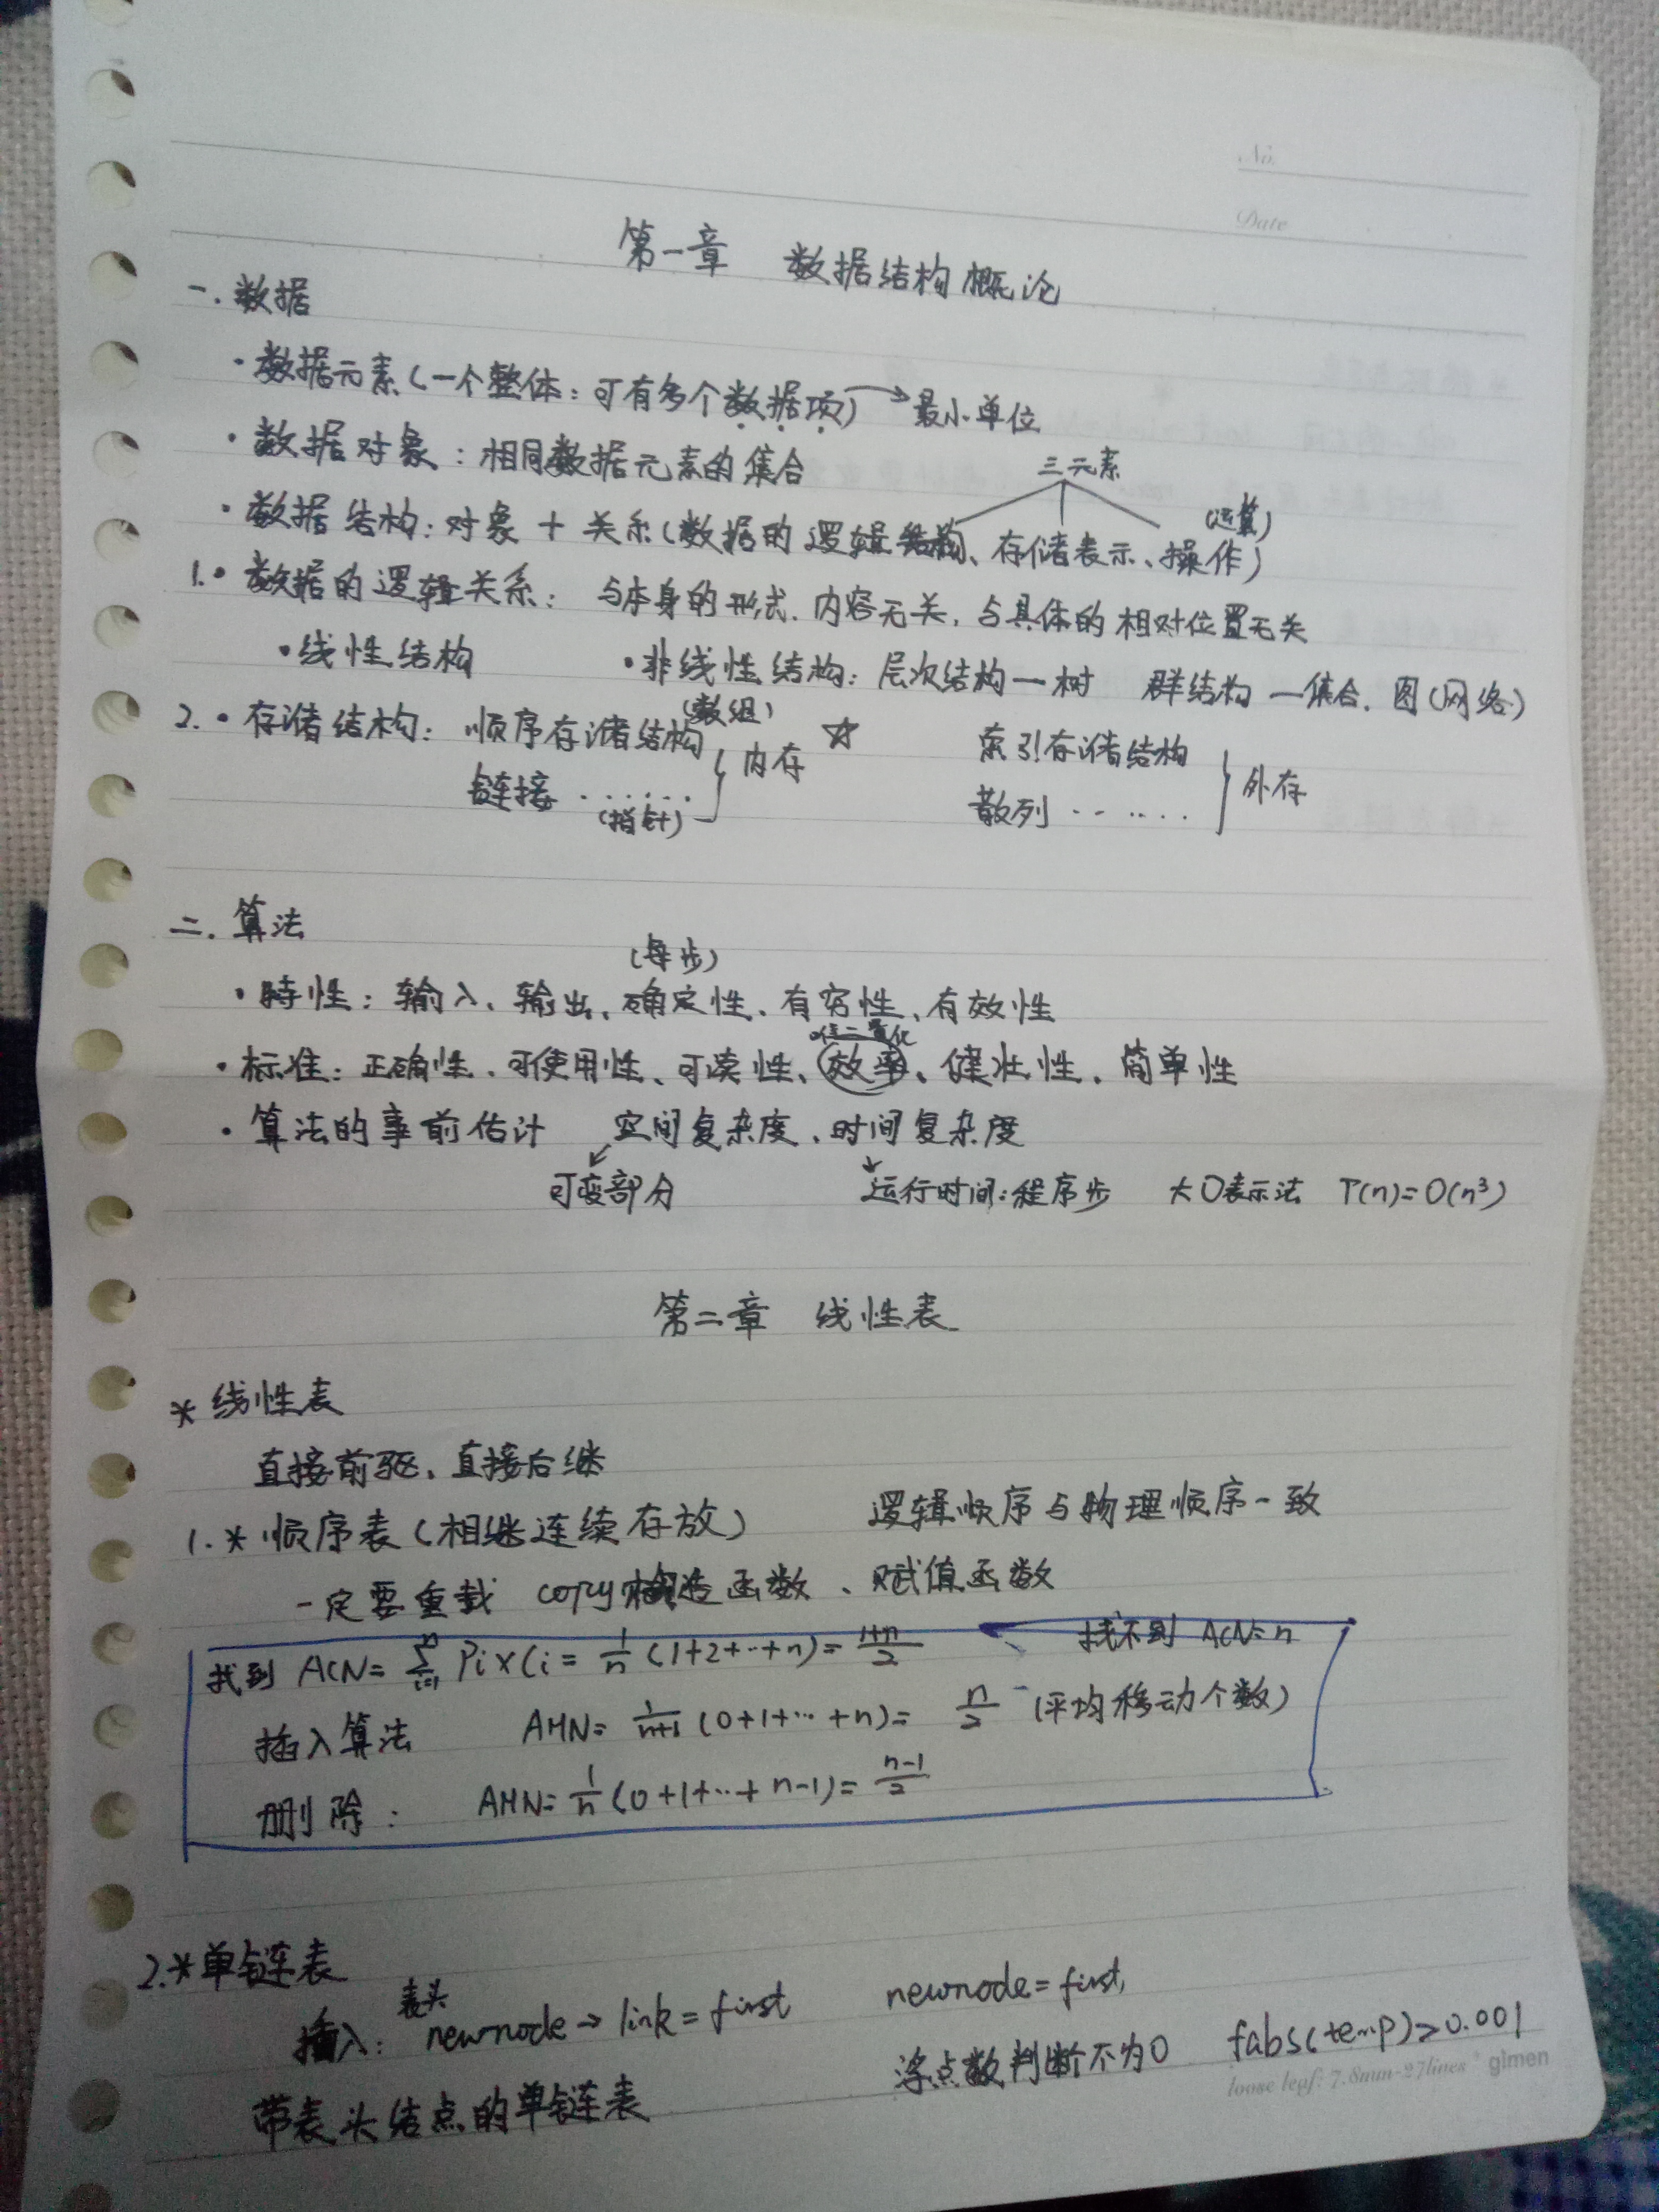 No.
Date
第一章 数据结构概论
一. 数据
· 数据元素(一个整体: 可有多个数据项) → 最小单位
· 数据对象: 相同数据元素的集合
三元素
(运算)
· 数据结构: 对象 + 关系(数据的逻辑结构、存储表示、操作)
1. · 数据的逻辑关系: 与本身的形式、内容无关, 与具体的相对位置无关
· 线性结构 · 非线性结构: 层次结构—树 群结构—集合. 图(网络)
(数组)
2. · 存储结构: 顺序存储结构 } 内存 ☆ 索引存储结构 } 外存
链接 ...... 散列 ......
(指针)
二. 算法
(每步)
· 特性: 输入、输出、确定性、有穷性、有效性
量化
· 标准: 正确性、可使用性、可读性、效率、健壮性、简单性
· 算法的事前估计 空间复杂度、时间复杂度
可变部分 运行时间: 程序步 大O表示法 T(n)=O(n³)
第二章 线性表
* 线性表
直接前驱、直接后继
1. * 顺序表(相继连续存放) 逻辑顺序与物理顺序一致
一定要重载 copy构造函数、赋值函数
找到 ACN= Σ(i=1..n) Pi×Ci = 1/n (1+2+···+n)= (1+n)/2 找不到 ACN=n
插入算法 AMN= 1/(n+1) (0+1+···+n)= n/2 (平均移动个数)
删除: AMN= 1/n (0+1+···+n-1)= (n-1)/2
2.*单链表
表头
插入: newnode→link=first newnode=first,
浮点数判断不为0 fabs(temp)>0.001
带表头结点的单链表
loose leaf: 7.8mm·27lines gimen